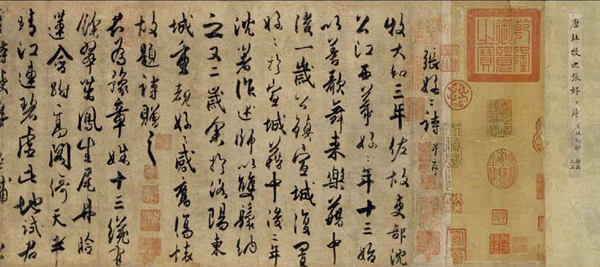 唐杜牧之張好〻詩
乾隆御覽之寶
張好〻詩 并序
牧大和三年佐故吏部沈
公江西幕好〻年十三始
以善歌舞來樂籍中
後一歲公鎮宣城復置
好〻於宣城籍中後二年
沈著作述師以雙鬟納
之又二歲余於洛陽東
城重覩好〻感舊傷懷
故題詩贈之
君為豫章姝十三纔有
餘翠茁鳳生尾丹臉
蓮含跗高閣倚天半
晴江連碧虛此地試君